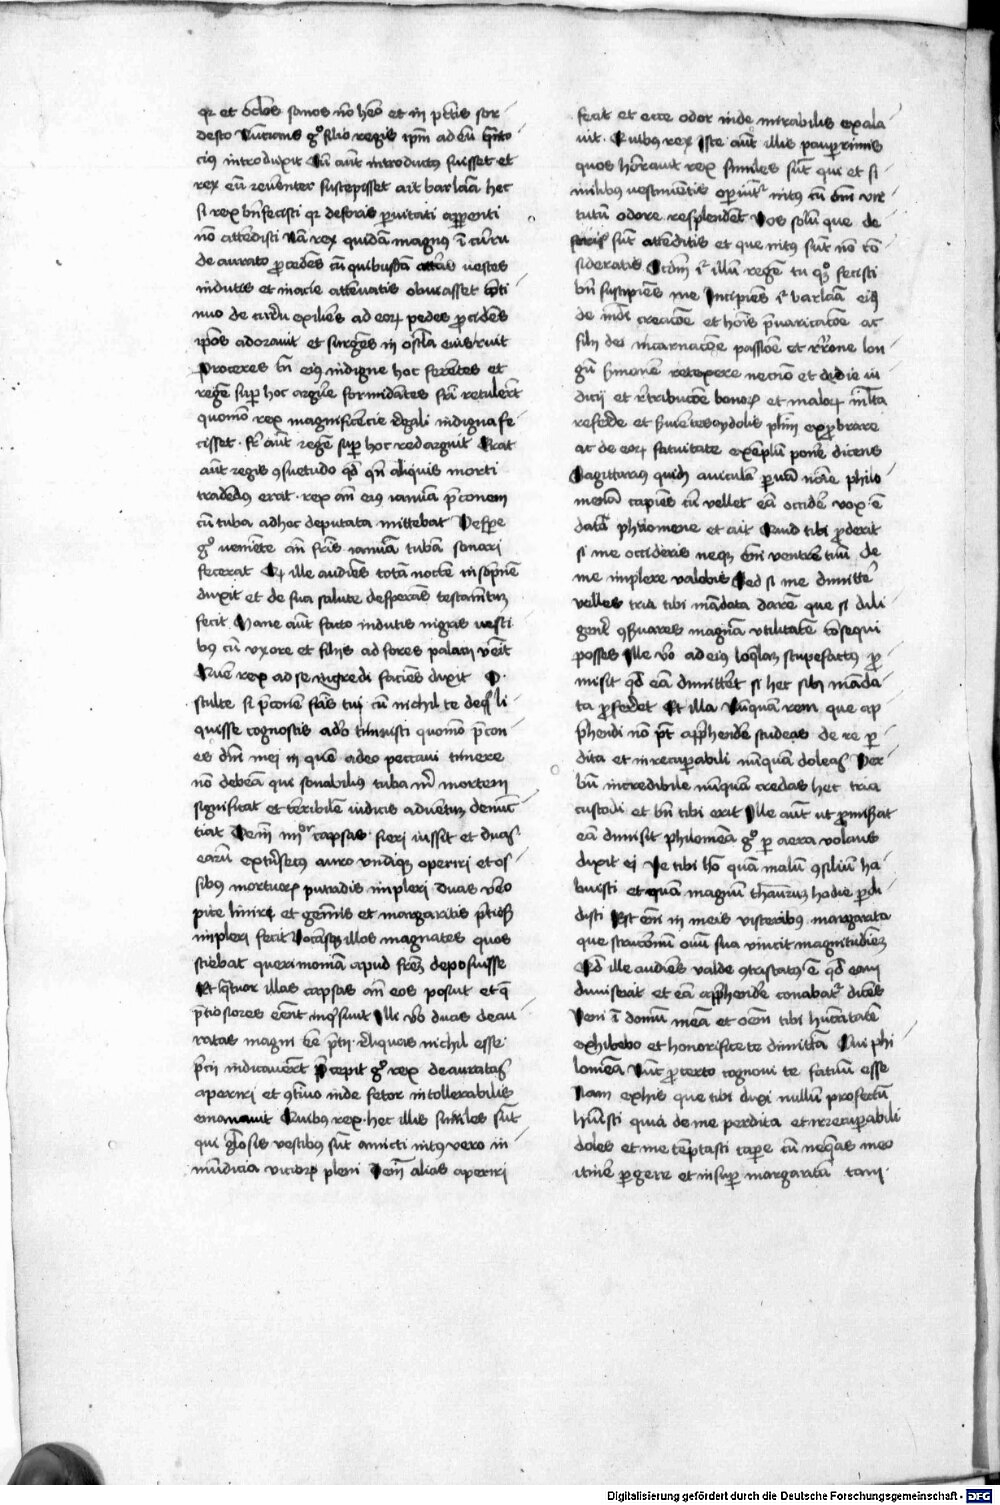 qr et oclos sanos nō heo et in pctis sor-
desco Nuncians gº filio regis ipm ad eū qnto
cius introduxit Cū aūt introductus fuisset et
rex eū reuenter suscepisset ait barlaā hec
si rex bnfecisti qr deforis puitati apparenti
nō attendisti Nā rex quidā magnus ī curru
de aurato pcedēs cū quibusdā attritas uestes
indutis et macie attenuatis obuiasset conti
nuo de curru exiliēs ad eor pedes pcidēs
ipos adorauit et surgēs in oscula eius ruit
Proceres tn eius indigne hoc ferētes et
regē sup hoc arguē formidātes fri retulert
quomō rex magnificencie regali indigna fe
cisset · fr aūt regē sup hoc redarguit Erat
aūt regis ꝯsuetudo qd qn aliquis morti
tradēdus erat · rex an eius ianuā pconem
cū tuba ad hoc deputata mittebat Vespe
gº ueniēte an fris ianuā tubā sonari
fecerat Qr ille audiēs totā noctē insōpnē
duxit et de sua salute desperās testamētum
fecit Mane aūt facto indutis nigris uesti
bus cū vxore et filijs ad fores palacij venit
Quem rex ad se ingredi faciēs dixit O
stulte si pconē fris tui cū nichil te deliq
quisse cognoscis adeo timuisti quomō pcon
es dni mei in quē adeo peccaui timere
nō debeā qui sonabilius tuba m mortem
significat et terribilē iudicis aduentum denunc
tiat Deīn iiijor capsas fieri iussit et duas
earū extrsecus auro vndiqʒ operiri et os
sibus mortuor putridis impleri duas vero
pice liniri et gemis et margaritis pciosis
impleri fecit Vocasqʒ illos magnates quos
sciebat querimoniā apud frem deposuisse
Et qtuor illas capsas an eos posuit et q
pciosiores eent inqsiuit Illi vo duas deau
ratas magni eē pcij · reliquas nichil esse
pcij indicauert Pcepit gº rex deauratas
aperiri et ꝯtinuo inde fetor intollerabilis
emanauit Quibus rex · hec illis similes sūt
qui gliosis vestibus sūt amicti intus vero in
mūdicia vicior pleni Deīn alias aperiri
fecit et ecce odor inde mirabilis exala
uit · Quibus rex Iste aūt illis paupimis
quos honraui rex similes sūt qui et si
uilibus vestimētis operiuntr intus cū omi vir
tutū odore resplendet Vos solū que de
foris sūt attenditis et que intus sūt nō cō
sideratis Scdm ꝫ illū regē tu qº fecisti
bn suscipiēs me Incipiēs ꝫ barlaā eius
de mūdi creacōe et hois puaricatōe ac
filij dei incarnacōe passiōe et rrōne lon
gū smonē retexere necnō et de die iu
dicij et rtribucōe bonor et malor mlta
referēde et seruiētes ydolis plm exprobrare
ac de eor fatuitate exemplū ponē dicens
Sagittarius quidā auiculā puā noīe philo
menā capiens cū vellet eā occidē vox ē
data philomene et ait Quid tibi pderit
si me occideris neqʒ em ventrē tuū de
me implere valebis Sed si me dimittē
velles tria tibi mādata darē que si dili
gentr ꝯseruares magnā vtilitatē cōsequi
posses Ille vo ad eius loqlam stupefactus p
misit qd eā dimitteret si hec sibi māda
ta pferret Et illa Nūquam rem que ap
phendi nō pt apphendē studeas de re p
dita et inrecupabili nūquā doleas Ver
bū incredibile nūquā credas hec tria
custodi et bn tibi erit Ille aūt ut pmiserat
eā dimisit philomēa gº p aera volans
dixit ei Ve tibi hō quā malū ꝯsiliū ha
buisti et quā magnū thesaurum hodie pdi
disti Est em in meis visceribus margarita
que strucionū ouū sua vincit magnitudiēm
Qd ille audiēs valde ꝯtristatus ē qd eam
dimiserat et eā apphendē conabatr dicēs
Veni ī domū meā et oēm tibi huītatē
exhibebo et honorifice te dimittā Cui phi
lomēa Nūc pcerto cognoui te fatuū esse
Nam ex his que tibi dixi nullū profectū
habuisti quia de me perdita et irrecupabili
doles et me temptasti capere cū neqas meo
itinē pgere et insup margaritā tam
Digitalisierung gefördert durch die Deutsche Forschungsgemeinschaft - DFG